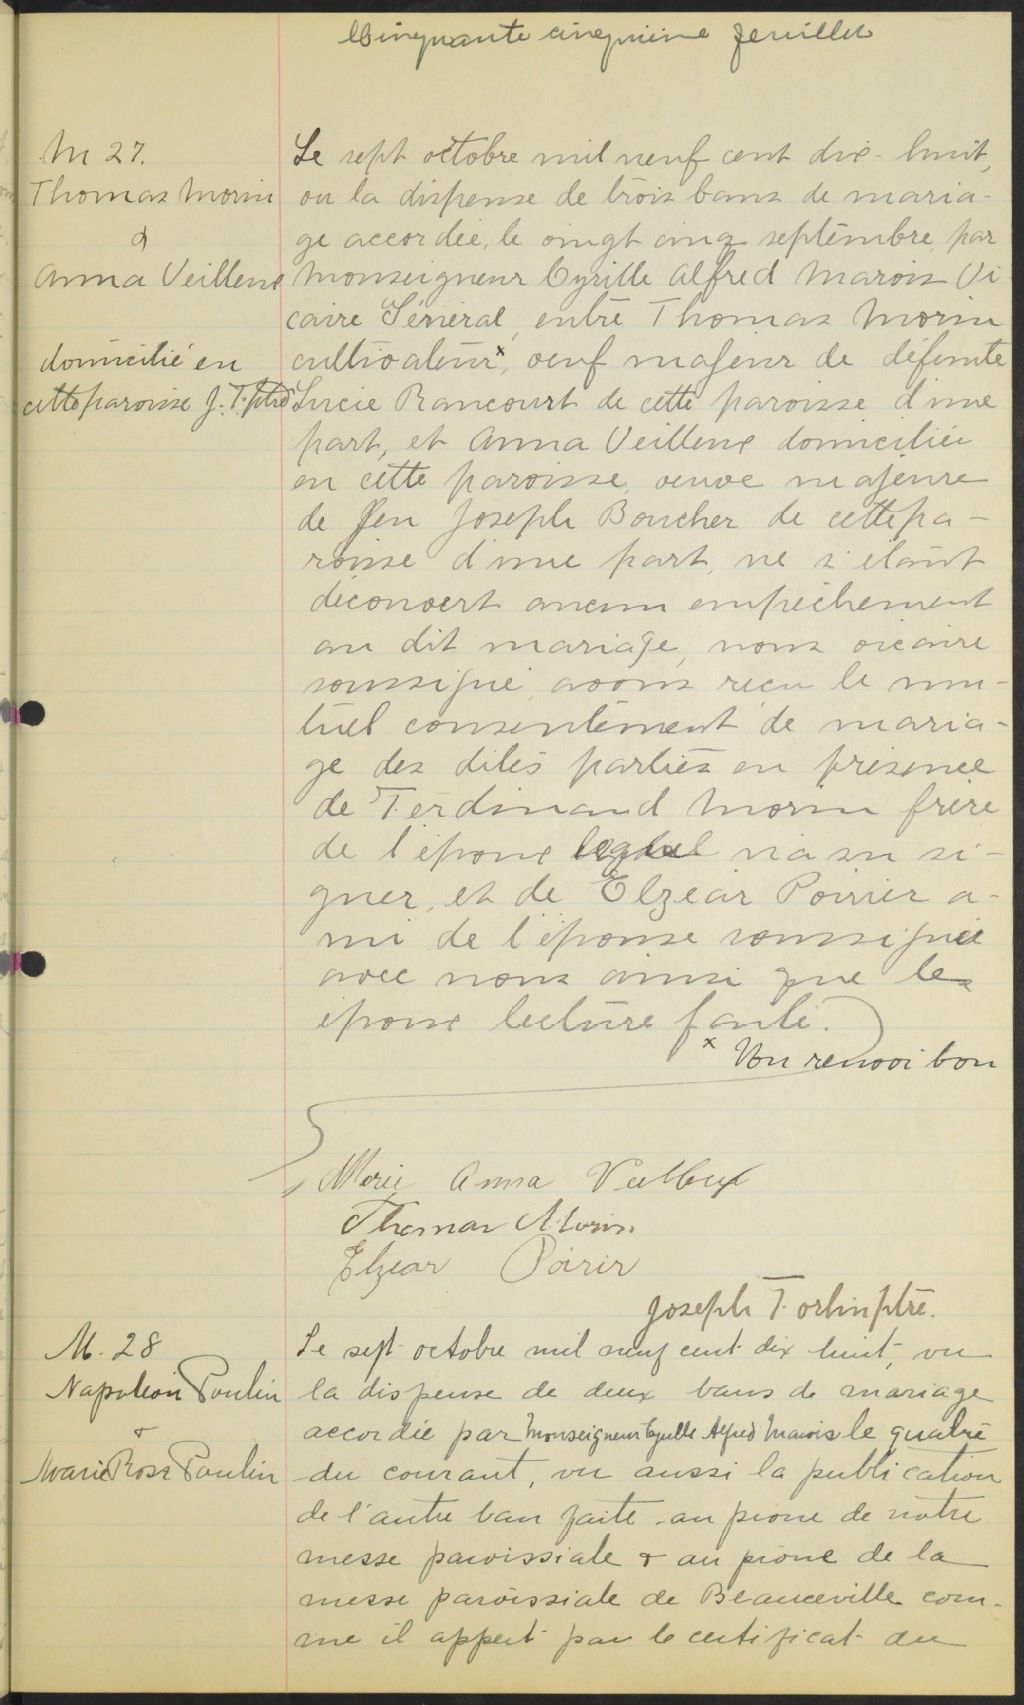 Cinquante cinquième feuillet
M 27.
Thomas Morin
&
Anna Veilleux
domicilié en
cette paroisse J. T. ptre
Le sept octobre mil neuf cent dix-huit,
vu la dispense de trois bans de maria-
ge accordée, le vingt cinq septembre, par
Monseigneur Cyrille Alfred Marois Vi
caire Général, entre Thomas Morin
cultivateur x, veuf majeur de défunte
Lucie Rancourt de cette paroisse d'une
part, et Anna Veilleux domiciliée
en cette paroisse, veuve majeure
de feu Joseph Boucher de cette pa-
roisse d'une part, ne s'étant
découvert aucun empêchement
au dit mariage, nous vicaire
soussigné, avons reçu le mu-
tuel consentement de maria-
ge des dites parties en présence
de Ferdinand Morin frère
de l'époux lequel n'a su si-
gner, et de Elzéar Poirier a-
mi de l'épouse soussignée
avec nous ainsi que les
époux lecture faite.
x Un renvoi bon
Marie Anna Veilleux
Thomas Morin
Elzear Poirir
Joseph Fortin ptre.
M. 28
Napoléon Poulin
+
Marie Rose Poulin
Le sept octobre mil neuf cent dix huit, vu
la dispense de deux bans de mariage
accordée par Monseigneur Cyrille Alfred Marois le quatre
du courant, vu aussi la publication
de l'autre ban faite au prone de notre
messe paroissiale & au prône de la
messe paroissiale de Beauceville com-
me il appert par le certificat du